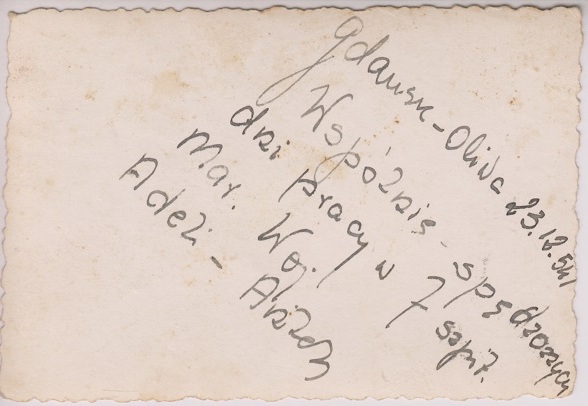 Gdańsk-Oliwa 23.12.54
Wspólnie-spędzonych
dni pracy w 7 szpit.
Mar. Woj.